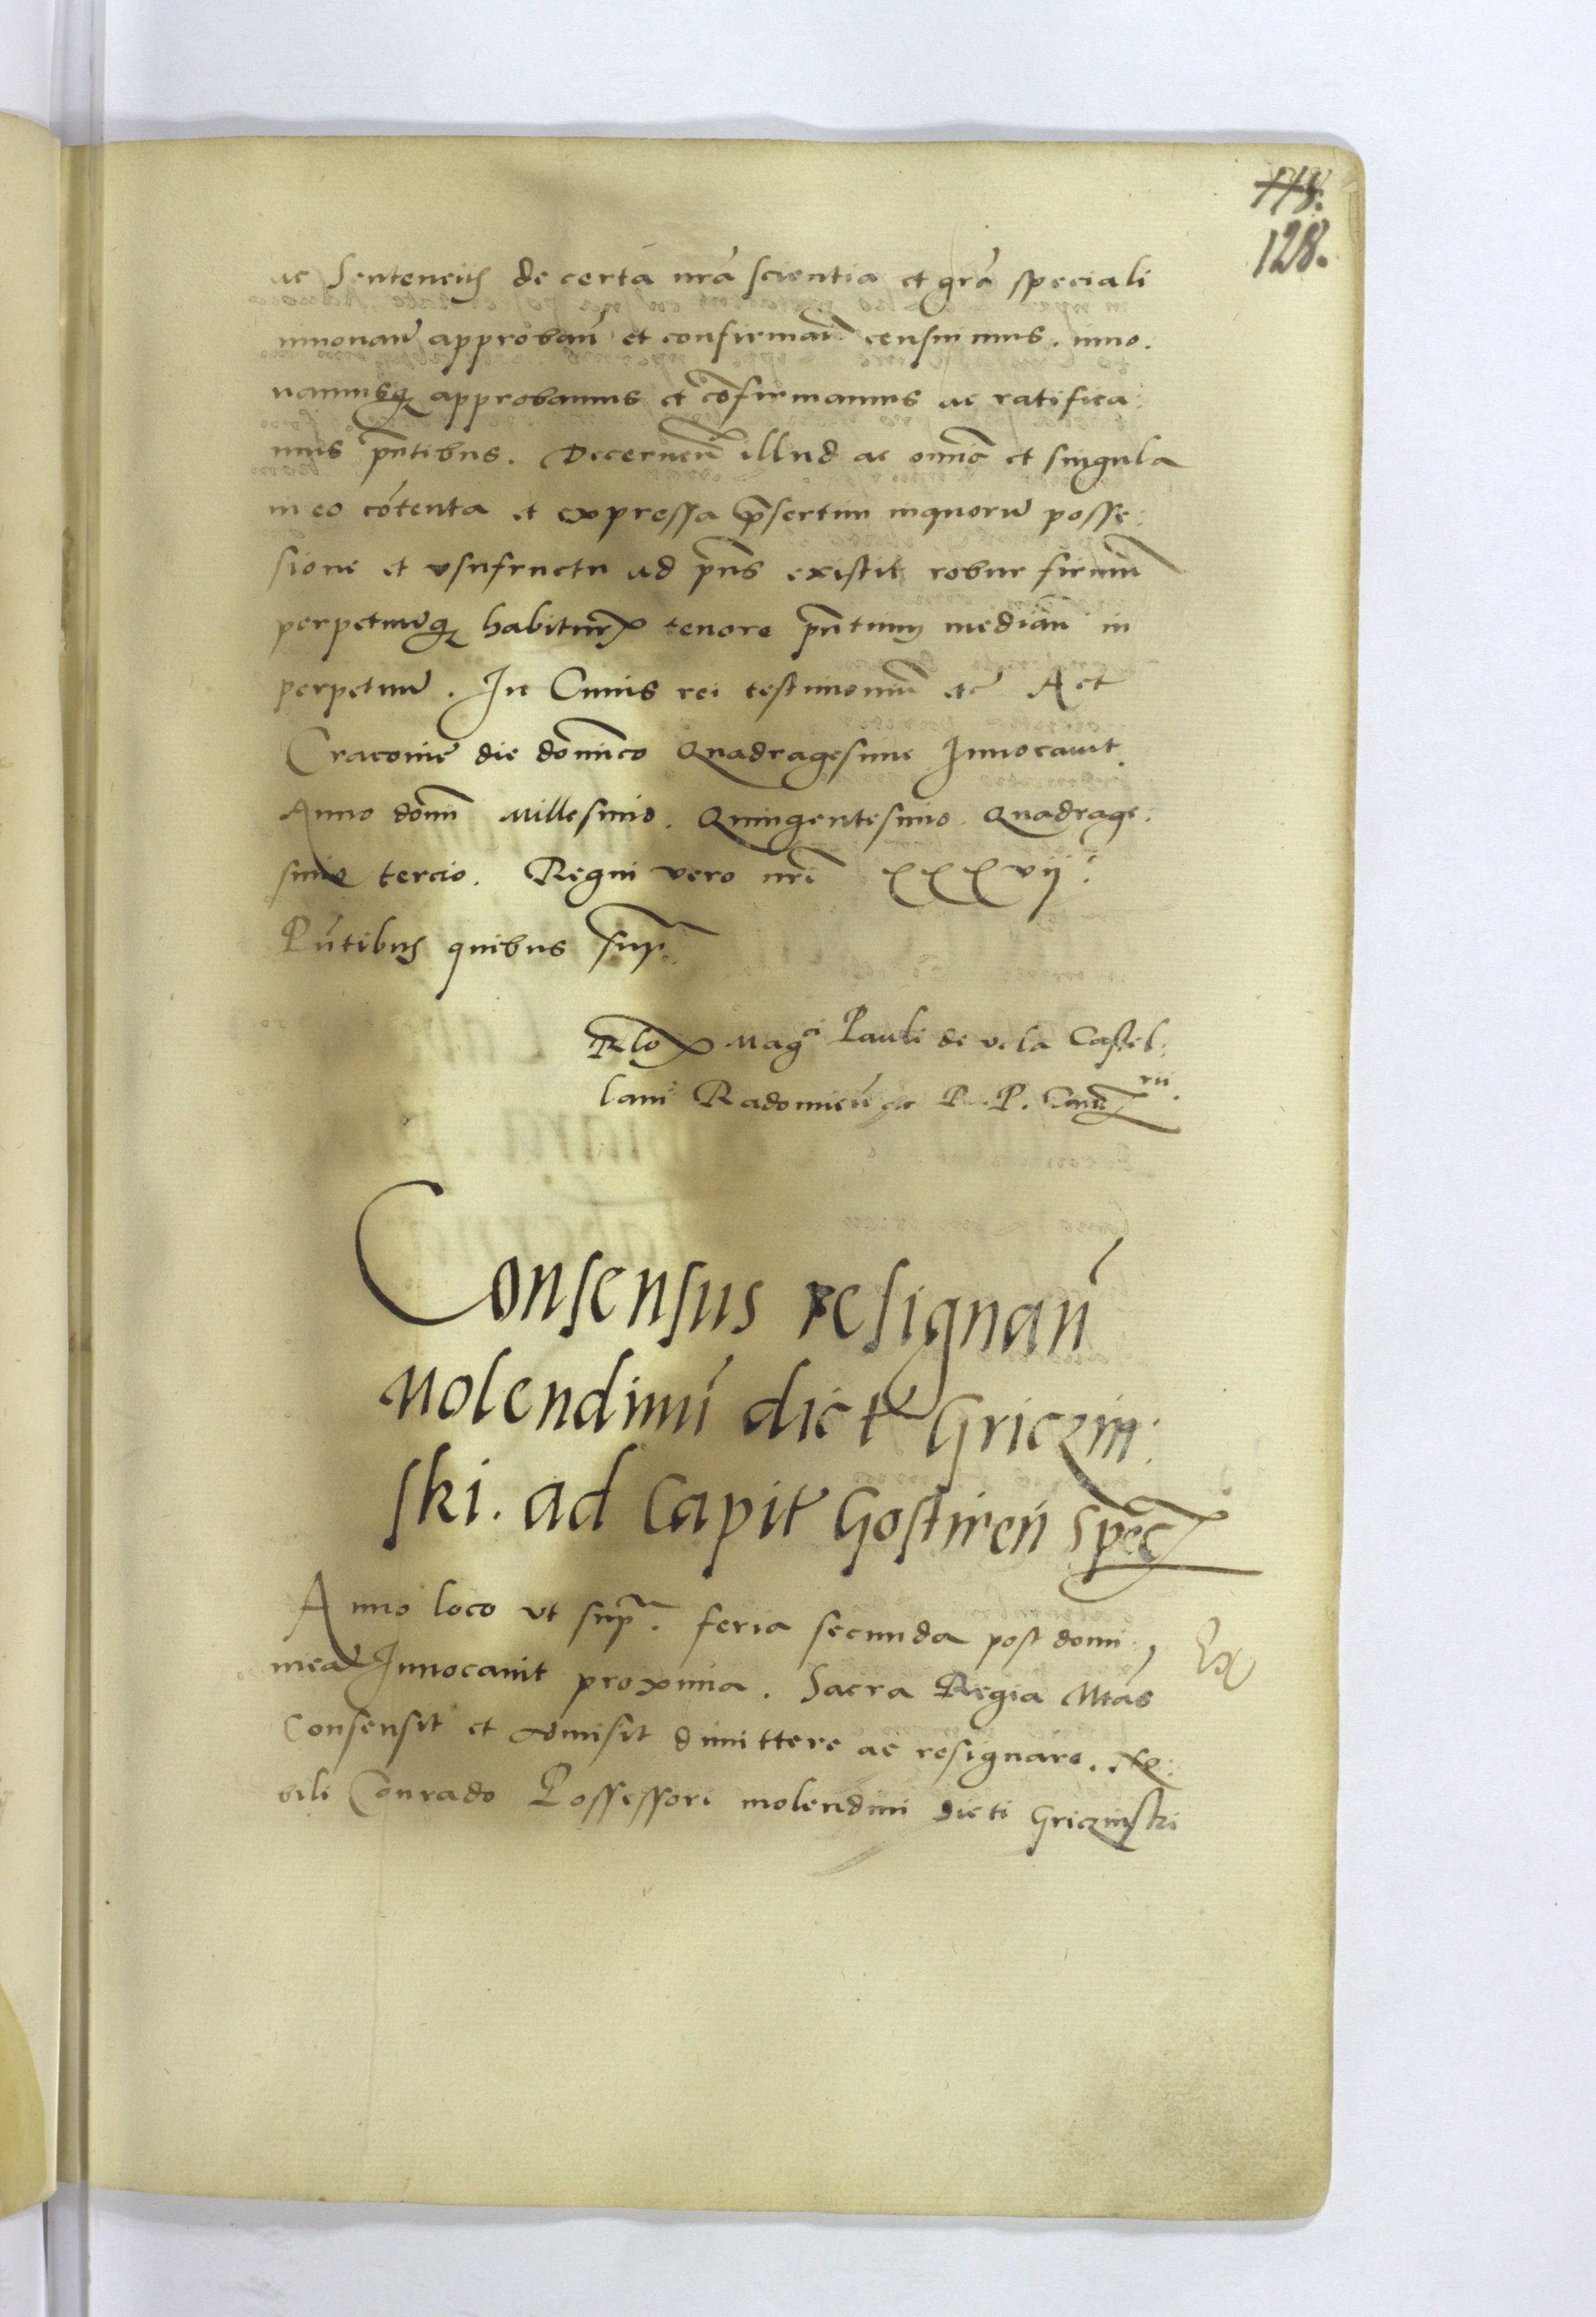 118.
128.
ac Sentencijs de certa nrã scientia et grã speciali
innouañ approbañ et confirmañ censuimus. inno:
uamusq approbamus et cõfirmamus ac ratifica:
mus pñtibus. Decerneñ illud ac omĩa et singula
in eo cõtenta et expressa p̃sertim in quorũ posse:
sione et vsufructu ad pñs existit robur firmũ
perpetuũq habitur tenore pñtium mediañ in
perpetuũ. In Cuius rei testimoniũ etc̃ Act
Cracouie die dominico Quadragesime Inuocauit.
Anno domĩ Millesimo. Quingentesimo. Quadrage:
simo tercio. Regni vero nrĩ xxxvij:
Pñtibus quibus sup:
Rlo Mag^ci Pauli de vola Castel:
lani Radomieñ ac R. P. Canc^rii.
Consensus resignañ
Molendini dict Griczin:
ski. ad Capit Gostineñ spec
Anno loco vt sup^a. feria secunda post domi:
nicã Inuocauit proxima. Sacra Regia Mtãs
Ex
Consensit et admisit dimittere ac resignare. No:
bili Conrado Possessori molendini dicti Griczinski